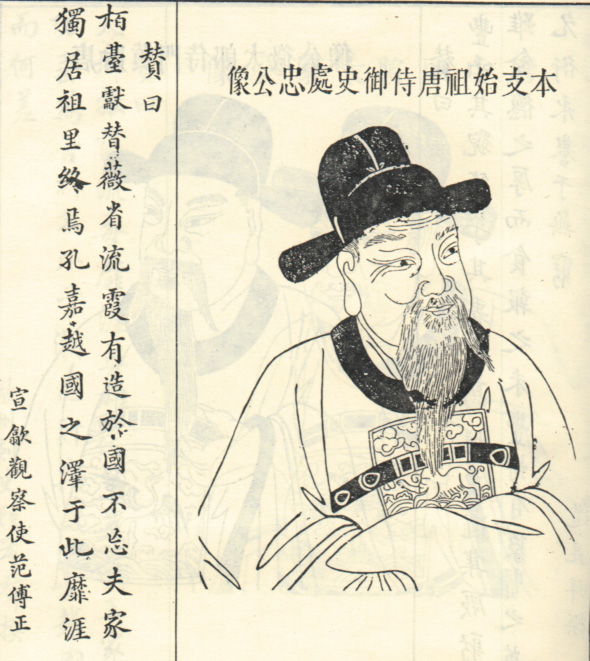 本支始祖唐侍御史處忠公像
賛曰
栢臺獻替薇省流霞有造於國不忘夫家
獨居祖里終焉孔嘉越國之澤于此靡涯
宣歙觀察使范傅正